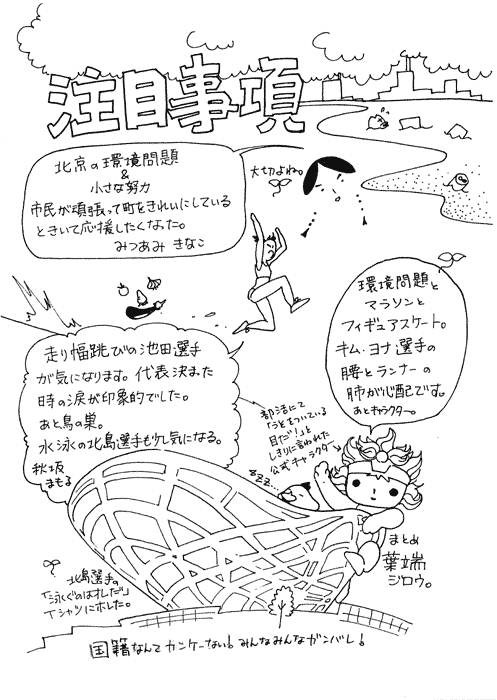 注目事項
北京の環境問題
&
小さな努力
市民が頑張って町をきれいにしている
ときいて応援したくなった。
みつあみ きなこ
大切よね。
環境問題と
マラソンと
フィギュアスケート。
キム・ヨナ選手の
腰とランナーの
肺が心配です。
あとキャラクター。
走り幅跳びの池田選手
が気になります。代表決まった
時の涙が印象的でした。
あと鳥の巣。
水泳の北島選手も気になる。
秋坂
まもる
部活にて
「うそをついている
目だ!」と
しきりに言われた
公式キャラクタ
zzz...
まとめ
葉端
ジロウ。
北島選手の
「泳ぐのはオレだ」
Tシャツにホレた。
国籍なんてカンケーない!みんなみんなガンバレ!